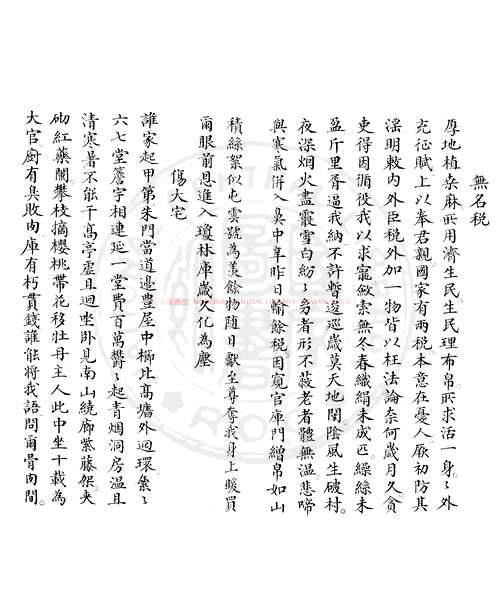 無名税
厚地植桑麻所用濟生民生民理布帛所求活一身〻外
充征賦上以奉君親國家有兩税本意在憂人厥初防其
淫明敕内外臣税外加一物皆以枉法論奈何歳月久貪
吏得因循役我以求寵斂索無冬春織絹未成匹繰絲未
盈斤里胥逼我納不許暫逡巡歳莫天地閉陰風生破村
夜深烟火盡霰雪白紛〻㓜者形不蔽老者體無温悲啼
與寒氣併入鼻中辛昨日輸餘税因窺官庫門繒帛如山
積絲絮似屯雲號為羡餘物随日獻至尊奪我身上暖買
爾眼前恩進入瓊林庫歳久化為塵
傷大宅
誰家起甲第朱門當道邊豊屋中櫛比髙墻外迴環纍〻
六七堂簷宇相連延一堂費百萬鬱〻起青烟洞房温且
清寒暑不能干髙亭虚且迴坐卧見南山繞廊紫藤架夾
砌紅藥闌攀枝摘櫻桃帶花移牡丹主人此中坐十載為
大官厨有臭敗肉庫有朽貫錢誰能将我語問爾骨肉間